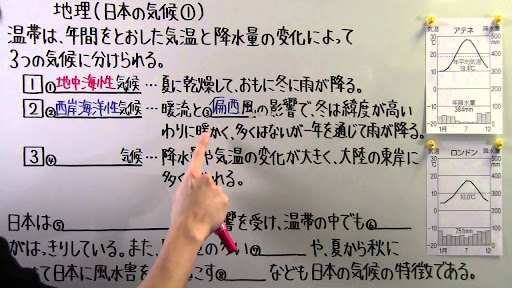 地理(日本の気候①)
温帯は、年間をとおした気温と降水量の変化によって
3つの気候に分けられる。
1 ①地中海性気候…夏に乾燥して、おもに冬に雨が降る。
2 ②西岸海洋性気候…暖流と③偏西風の影響で、冬は緯度が高い
わりに暖かく、多くはないが一年を通じて雨が降る。
3 ④ 気候…降水量や気温の変化が大きく、大陸の東岸に
多く れる。
日本は⑤ 響を受け、温帯の中でも⑥
がはっきりしている。また、 の多い⑦ や、夏から秋に
て日本に風水害を こす⑧ なども日本の気候の特徴である。
気温 アテネ 降水量
30
20
10
0
-10
-20
年平均気温
18.4℃
年降水量
384mm
500
400
300
200
100
0
1月 7 12
気温 ロンドン 降水量
30
20
10
0
-10
-20
10.0℃
751mm
500
400
300
200
100
0
1月 7 12